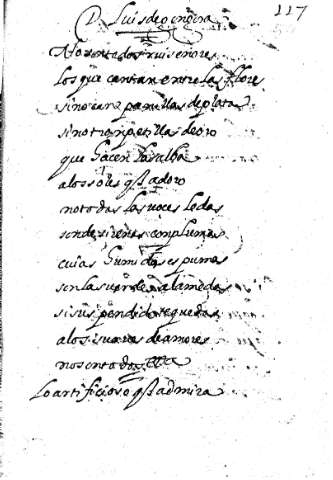 D. Luis de gongora
117
No son todos ruiseñores
los que cantan entre las flores
sino campanillas de plata
sino trompetillas de oro
que hacen la salba
a los soles q̃ adoro
no todas las uoces ledas
son de sirenas con plumas
cuias humidas espumas
son las uerdes alamedas
si suspendido te quedas
a los suaues clamores
no son todos &a
Lo artificioso q̃ admira